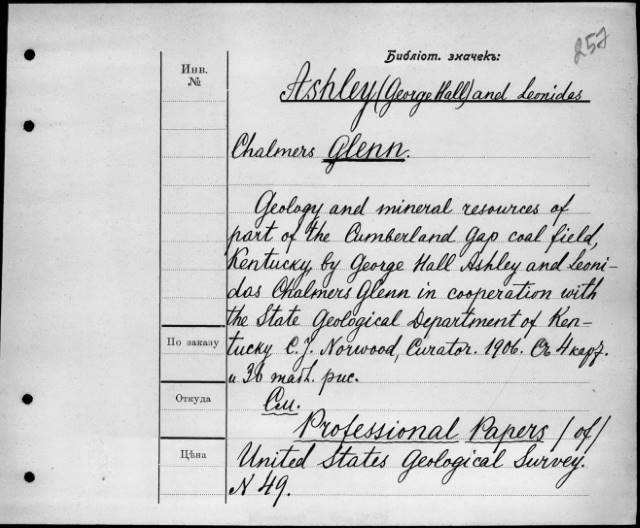 257
Библіот. значекъ:
Инв.
№
Ashley (George Hall) and Leonidas
Chalmers Glenn.
Geology and mineral resources of
part of the Cumberland Gap coal field,
Kentucky, by George Hall Ashley and Leoni-
das Chalmers Glenn in cooperation with
the State Geological Department of Ken-
tucky C. J. Norwood, Curator. 1906. Съ 4 карт.
и 36 табл. рис.
По заказу
Откуда
См.
Professional Papers / of /
Цѣна
United States Geological Survey.
N 49.